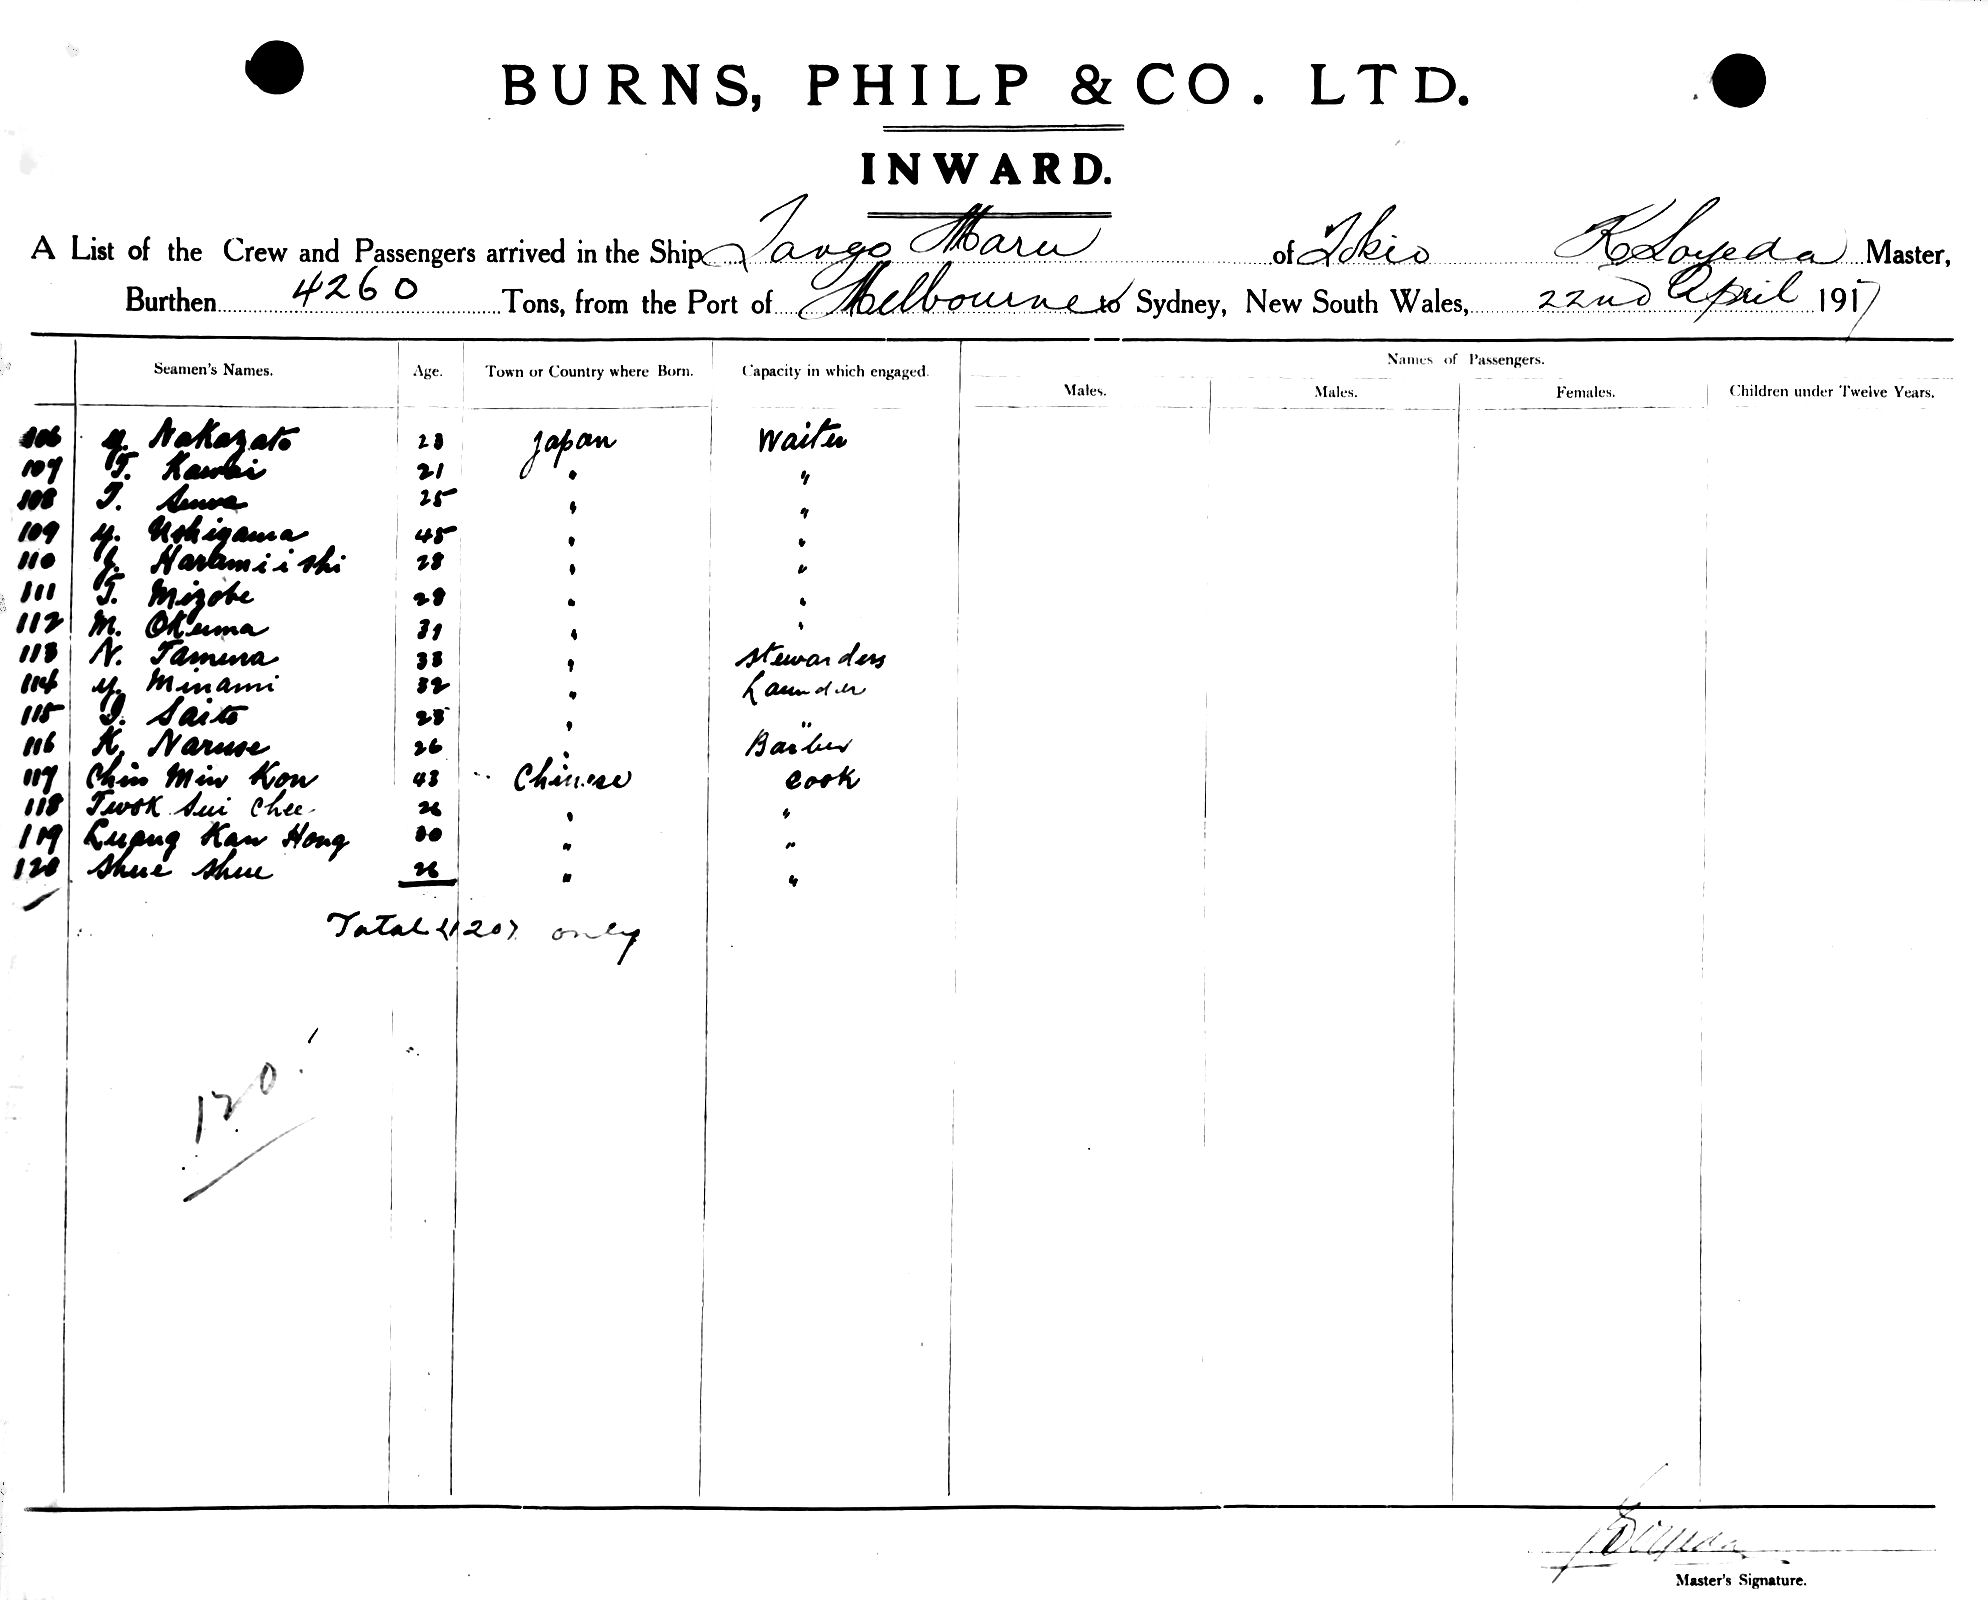 BURNS, PHILP & CO. LTD.
INWARD.
A List of the Crew and Passengers arrived in the Ship Tango Maru of Tokio K Soyeda Master,
Burthen 4260 Tons, from the Port of Melbourne to Sydney, New South Wales, 22nd April 1917
Seamen's Names. Age. Town or Country where Born. Capacity in which engaged. Names of Passengers.
Males. Males. Females. Children under Twelve Years.
106 Y. Nakazato 23 Japan Waiter
107 T. Kawai 21 " "
108 T. Suwa 25 " "
109 Y. Ushigama 45 " "
110 Haramiishi 28 " "
111 T. Mizobe 28 " "
112 M. Okuma 31 " "
113 N. Tamura 33 " Stewardess
114 Y. Minami 32 " Launder
115 Saito 28 " "
116 K. Naruse 26 " Barber
117 Chin Min Kon 43 Chinese Cook
118 Twok Sui Chee 26 " "
119 Luang Kan Hong 30 " "
120 Shue Shue 26 " "
Total (120) only
120
K Soyeda
Master's Signature.